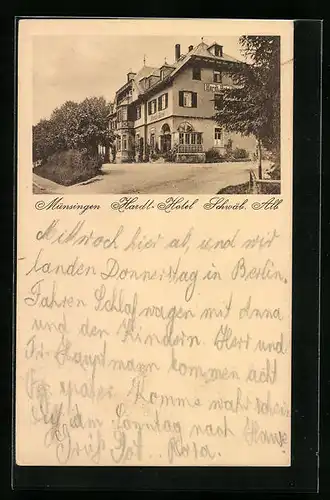 Münsingen Hardt-Hotel Schwäb. Alb
Mittwoch hier ab, und wir
landen Donnerstag in Berlin.
Fahren Schlafwagen mit Anna
und den Kindern. Herr und
Fr. Hauptmann kommen acht
Tg später. Komme wahrschein
auf dem Sonntag nach Hause
Grüß Got... Rosa.